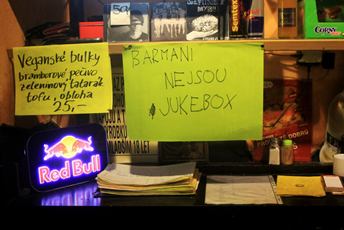 Veganské bulky
bramborové pečivo
zeleninový tatarák
tofu, obloha
25,-
BARMANI
NEJSOU
JUKEBOX
Red Bull
CORNY
MLADŠÍM 18 LET